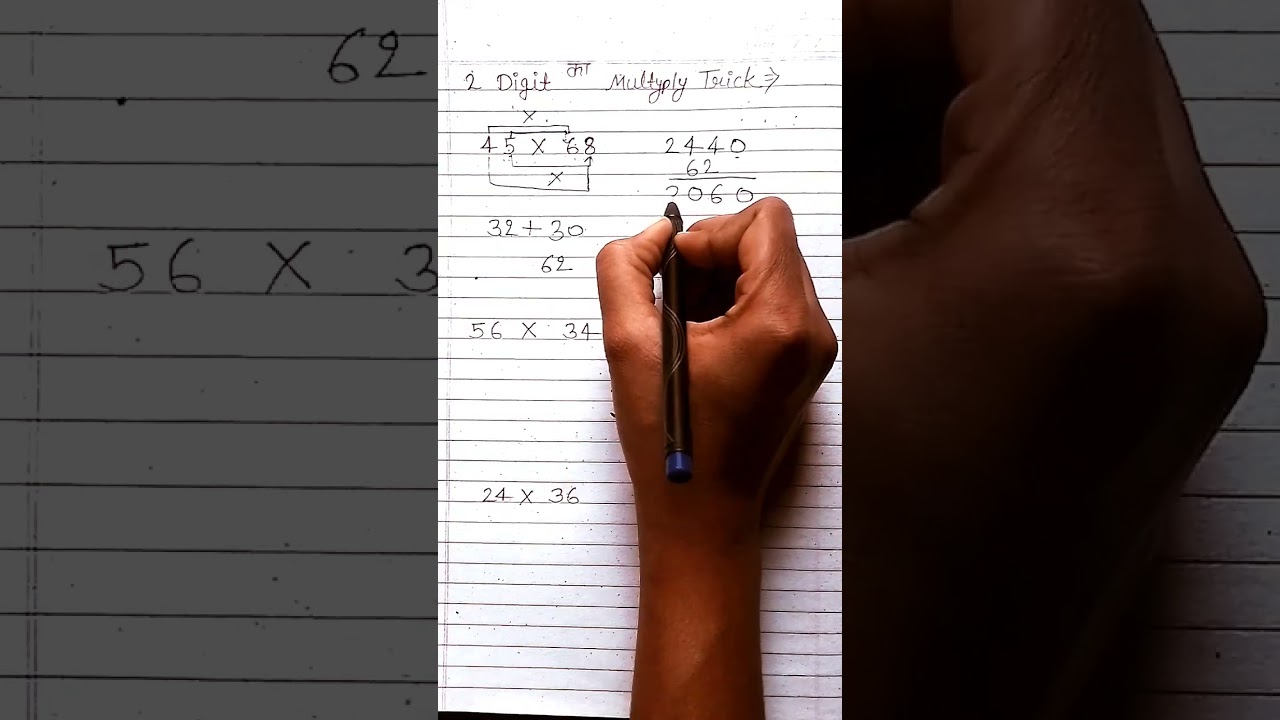 2 Digit का Multyply Trick ⇒
×
45 × 68
×
2440
62
2060
32 + 30
62
56 × 34
24 × 36
62
56 × 3